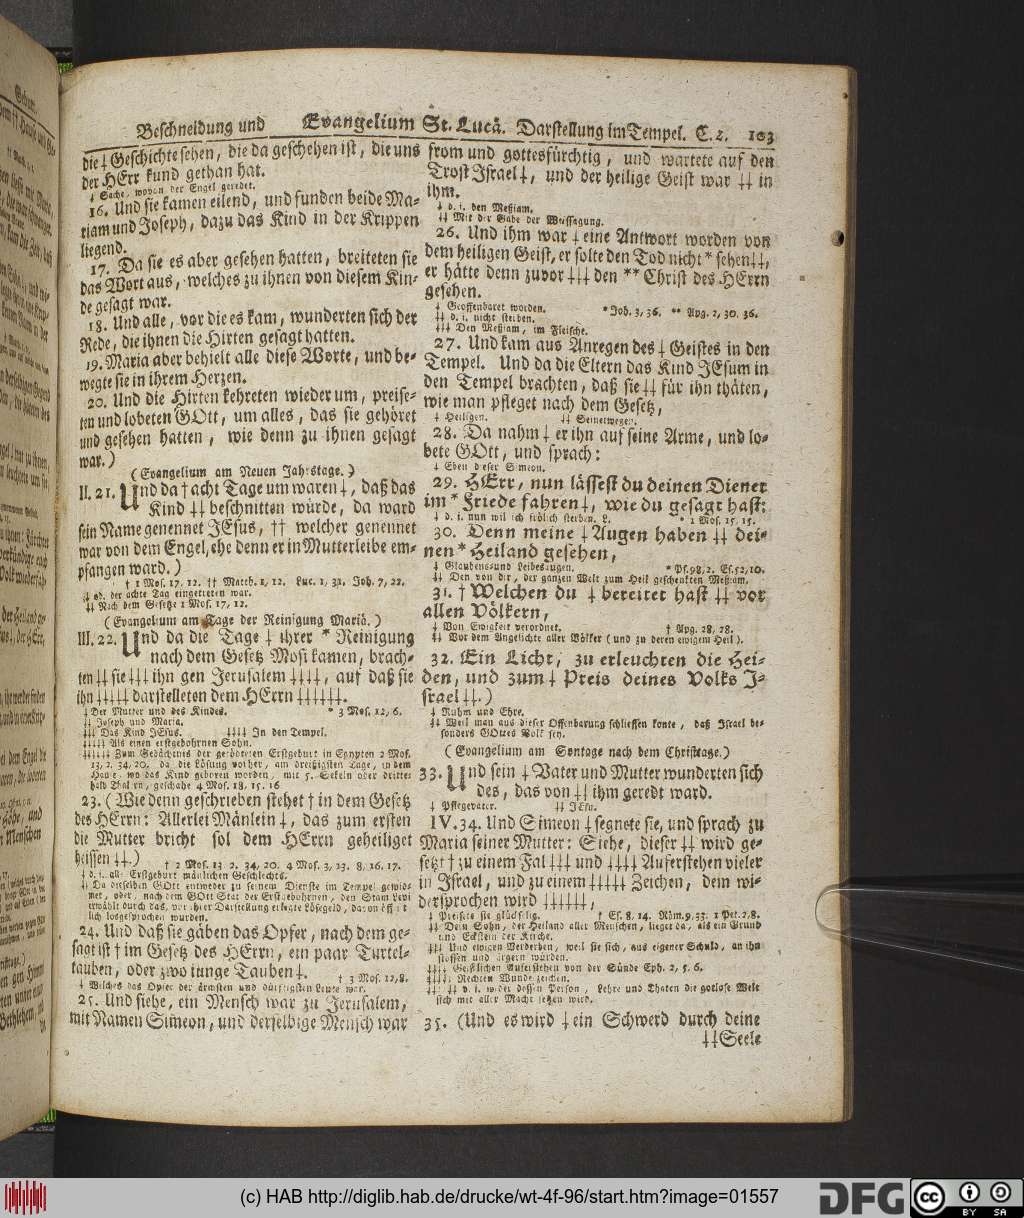 Beschneidung und Evangelium St. Lucä. Darstellung im Tempel. C. 2. 103
die ‡ Geschichte sehen, die da geschehen ist, die uns
der HErr kund gethan hat.
‡ Sache, wovon der Engel geredet.
16. Und sie kamen eilend, und funden beide Ma-
riam und Joseph, dazu das Kind in der Krippen
liegend.
17. Da sie es aber gesehen hatten, breiteten sie
das Wort aus, welches zu ihnen von diesem Kin-
de gesagt war.
18. Und alle, vor die es kam, wunderten sich der
Rede, die ihnen die Hirten gesagt hatten.
19. Maria aber behielt alle diese Worte, und be-
wegte sie in ihrem Herzen.
20. Und die Hirten kehreten wieder um, preise-
ten und lobeten GOtt, um alles, das sie gehöret
und gesehen hatten, wie denn zu ihnen gesagt
war.)
(Evangelium am Neuen Jahrstage.)
II. 21. Und da † acht Tage um waren ‡, daß das
Kind ‡‡ beschnitten würde, da ward
sein Name genennet JEsus, †† welcher genennet
war von dem Engel, ehe denn er in Mutterleibe em-
pfangen ward.)
† 1 Mos. 17, 12. †† Matth. 1, 12. Luc. 1, 31. Joh. 7, 22.
‡ od. der achte Tag eingetreten war.
‡‡ Nach dem Gesetze 1 Mos. 17, 12.
(Evangelium am Tage der Reinigung Mariä.)
III. 22. Und da die Tage ‡ ihrer * Reinigung
nach dem Gesetz Mosi kamen, brach-
ten ‡‡ sie ‡‡‡ ihn gen Jerusalem ‡‡‡‡, auf daß sie
ihn ‡‡‡‡‡ darstelleten dem HErrn ‡‡‡‡‡‡.
‡ Der Mutter und des Kindes. * 3 Mos. 12, 6.
‡‡ Joseph und Maria.
‡‡‡ Das Kind JEsus. ‡‡‡‡ In den Tempel.
‡‡‡‡‡ Als einen erstgebohrnen Sohn.
‡‡‡‡‡‡ Zum Gedächtnis der geödeten Erstgeburt in Egypten 2 Mos.
13, 2. 34, 20. da die Lösung vorher, am dreißigsten Tage, in dem
Hause, wo das Kind geboren worden, mit 5. Sekeln oder dritte-
halb Thalern, geschahe 4 Mos. 18, 15. 16
23. (Wie denn geschrieben stehet † in dem Gesetz
des HErrn: Allerlei Mänlein ‡, das zum ersten
die Mutter bricht sol dem HErrn geheiliget
heissen ‡‡.)
† 2 Mos. 13, 2. 34, 20. 4 Mos. 3, 13. 8, 16. 17.
‡ d. i. alle Erstgeburt mänlichen Geschlechts.
‡‡ Da dieselben GOtt entweder zu seinem Dienste im Tempel gewid-
met, oder, nach dem GOtt Stat der Erstgebohrnen, den Stam Levi
erwählt durch das, vor ihrer Darstellung erlegte Lösegeld, davon öffent-
lich losgesprochen wurden.
24. Und daß sie gäben das Opfer, nach dem ge-
sagt ist † im Gesetz des HErrn, ein paar Turtel-
tauben, oder zwo iunge Tauben ‡.
† 3 Mos. 12, 8.
‡ Welches das Opfer der ärmsten und dürftigsten Leute war.
25. Und siehe, ein Mensch war zu Jerusalem,
mit Namen Simeon, und derselbige Mensch war
from und gottesfürchtig, und wartete auf den
Trost Israel ‡, und der heilige Geist war ‡‡ in
ihm.
‡ d. i. den Meßiam.
‡‡ Mit der Gabe der Weissagung.
26. Und ihm war ‡ eine Antwort worden von
dem heiligen Geist, er solte den Tod nicht * sehen ‡‡,
er hätte denn zuvor ‡‡‡ den ** Christ des HErrn
gesehen.
‡ Geoffenbaret worden. * Joh. 3, 36. ** Apg. 2, 30. 36.
‡‡ d. i. nicht sterben.
‡‡‡ Den Meßiam, im Fleische.
27. Und kam aus Anregen des ‡ Geistes in den
Tempel. Und da die Eltern das Kind JEsum in
den Tempel brachten, daß sie ‡‡ für ihn thäten,
wie man pfleget nach dem Gesetz,
‡ Heiligen. ‡‡ Seinetwegen.
28. Da nahm ‡ er ihn auf seine Arme, und lo-
bete GOtt, und sprach:
‡ Eben dieser Simeon.
29. HErr, nun lässest du deinen Diener
im * Friede fahren ‡, wie du gesagt hast;
‡ d. i. nun wil ich frölich sterben. L. * 1 Mos. 15, 15.
30. Denn meine ‡ Augen haben ‡‡ dei-
nen * Heiland gesehen,
‡ Glaubens-und Leibesaugen. * Ps. 98, 2. Es. 52, 10.
‡‡ Den von dir, der ganzen Welt zum Heil geschenkten Meßiam.
31. † Welchen du ‡ bereitet hast ‡‡ vor
allen Völkern,
‡ Von Ewigkeit verordnet. † Apg. 28, 28.
‡‡ Vor dem Angesichte aller Völker (und zu deren ewigem Heil).
32. Ein Licht, zu erleuchten die Hei-
den, und zum ‡ Preis deines Volks J-
srael ‡‡.)
‡ Ruhm und Ehre.
‡‡ Weil man aus dieser Offenbarung schliessen konte, daß Israel be-
sonders GOttes Volk sey.
(Evangelium am Sontage nach dem Christtage.)
33. Und sein ‡ Vater und Mutter wunderten sich
des, das von ‡‡ ihm geredt ward.
‡ Pflegevater. ‡‡ JEsu.
IV. 34. Und Simeon ‡ segnete sie, und sprach zu
Maria seiner Mutter: Siehe, dieser ‡‡ wird ge-
setzt † zu einem Fal ‡‡‡ und ‡‡‡‡ Auferstehen vieler
in Israel, und zu einem ‡‡‡‡‡ Zeichen, dem wi-
dersprochen wird ‡‡‡‡‡‡,
‡ Preisete sie glückselig. † Es. 8, 14. Röm. 9, 33. 1 Pet. 2, 8.
‡‡ Dein Sohn, der Heiland aller Menschen, lieget da, als ein Grund
und Eckstein der Kirche.
‡‡‡ Und ewigen Verderben, weil sie sich, aus eigener Schuld, an ihn
stossen und ärgern würden.
‡‡‡‡ Geistlichen Auferstehen von der Sünde Eph. 2, 5. 6.
‡‡‡‡‡ Rechten Wunderzeichen.
‡‡‡‡‡‡ d. i. wider dessen Person, Lehre und Thaten die gotlose Welt
sich mit aller Macht setzen wird.
35. (Und es wird ‡ ein Schwerd durch deine
‡‡ Seele
(c) HAB http://diglib.hab.de/drucke/wt-4f-96/start.htm?image=01557
DFG
CC BY SA